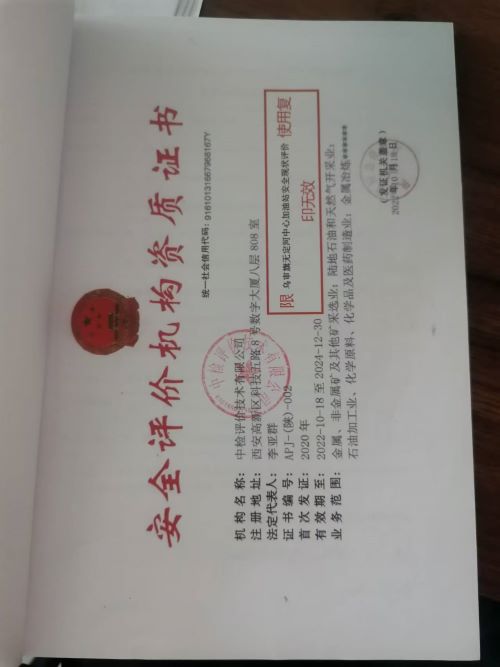 安全评价机构资质证书
统一社会信用代码：91610131667968167Y
机构名称：中检评价技术有限公司
注册地址：西安高新区科技五路8号数字大厦八层808室
法定代表人：李亚群
证书编号：APJ-(陕)-002
首次发证：2020年
有效期至：2022-10-18 至 2024-12-30
业务范围：金属、非金属矿及其他矿采选业；陆地石油和天然气开采业；
石油加工业、化学原料、化学品及医药制造业；金属冶炼********
限 乌审旗无定河中心加油站安全现状评价 使用复
印无效
（发证机关盖章）
2022年10月18日